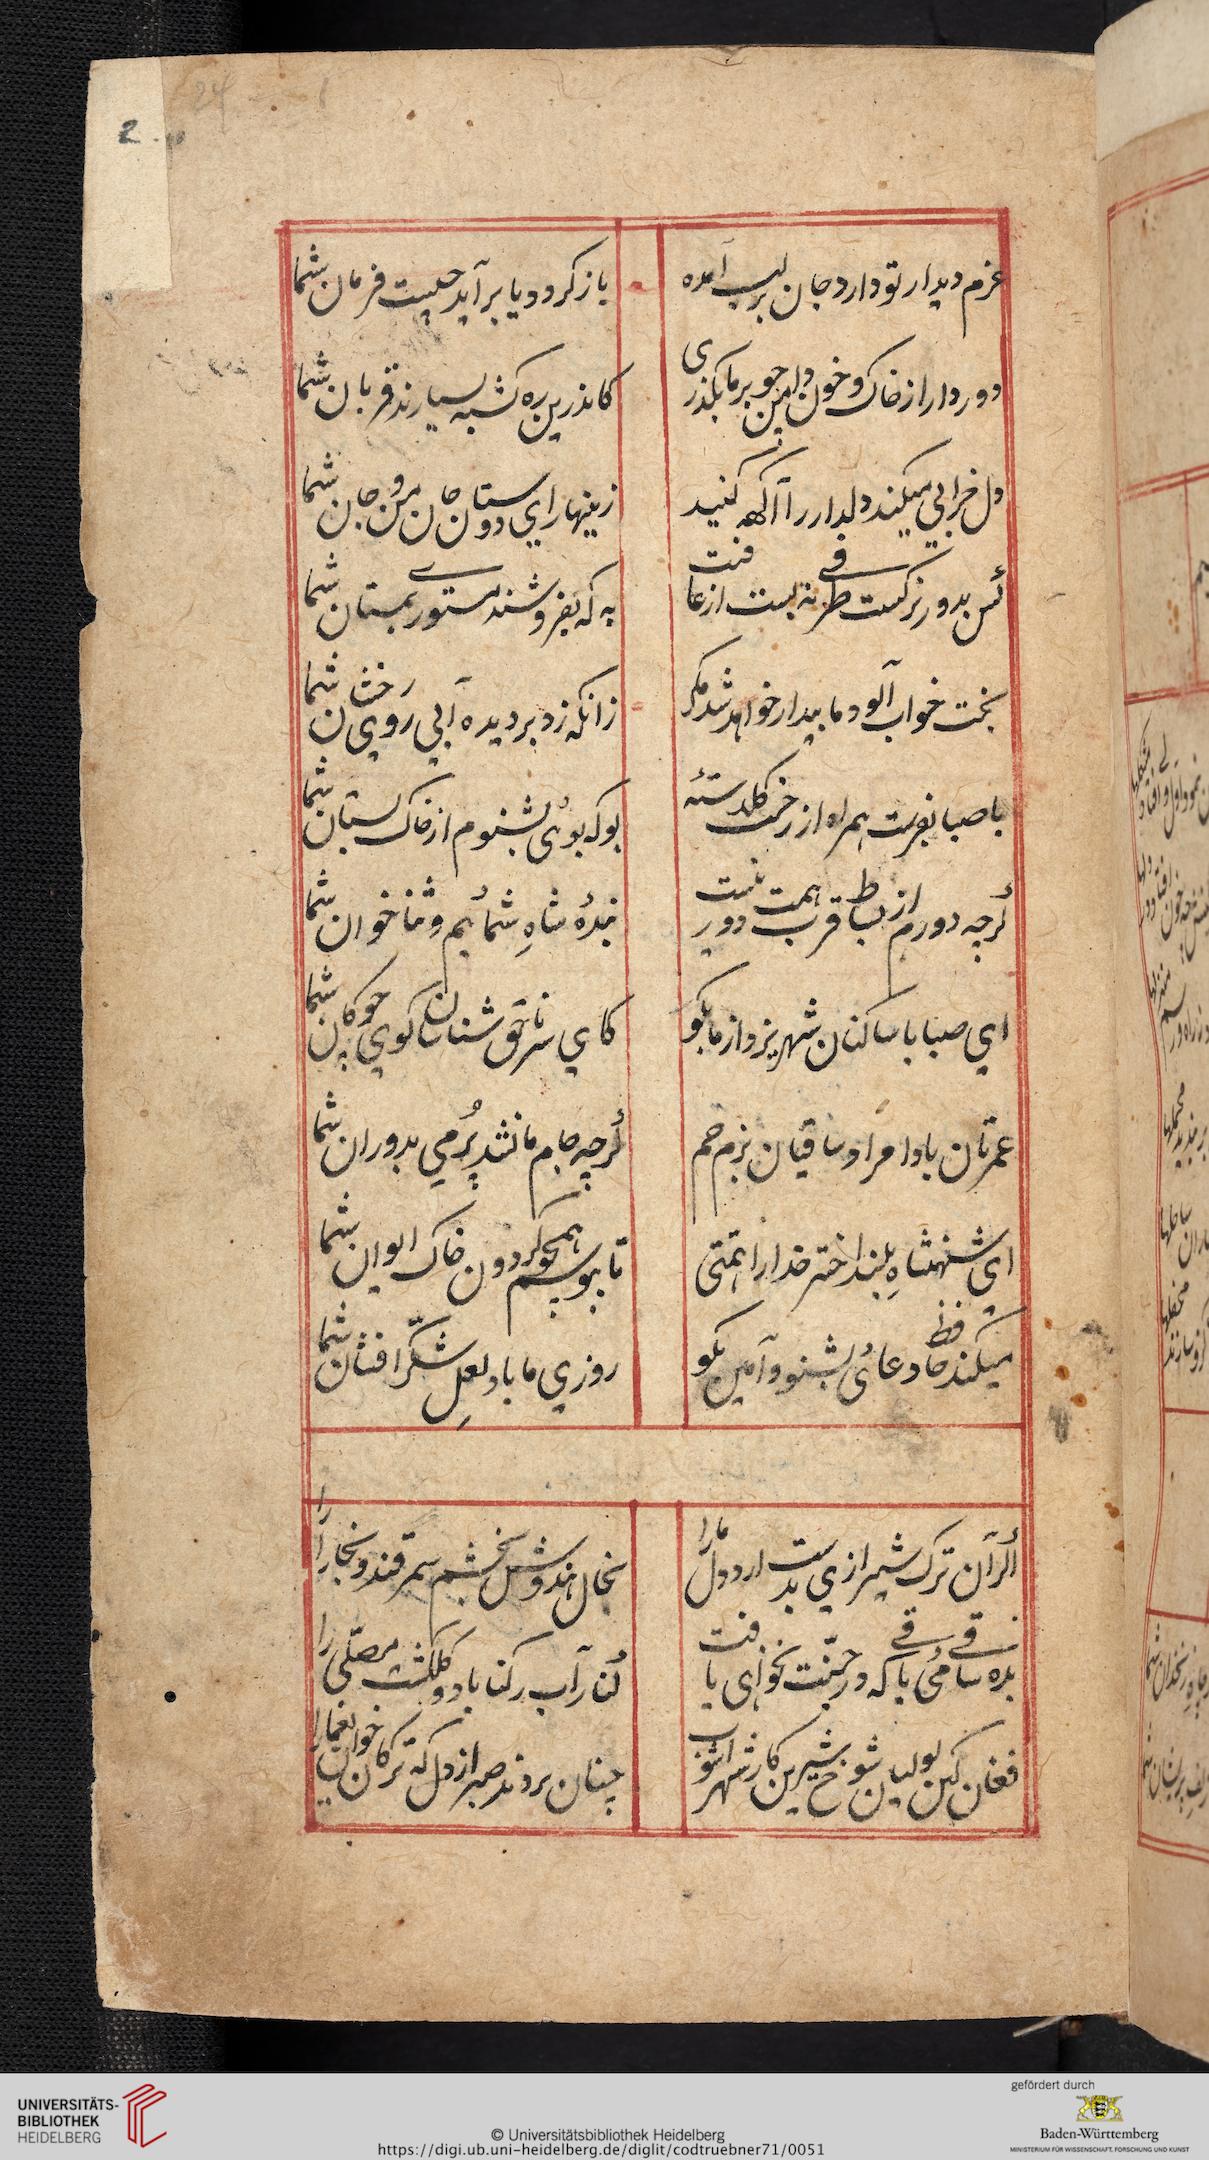 2
24
عزم دیدار تو دارد جان بر لب آمده
باز کردد یا بر آید چیست فرمان شما
دور دار از خاک و خون دامن چو بر ما بکذری
کاندرین ره کشته بسیارند قربان شما
دل خرابی میکند دلدار را آکه کنید
زینهار ای دوستان جان من و جان شما
کس بدور نرکست طرفی نه بست از عافیت
به که بفروشند مستوری بمستان شما
بخت خواب آلود ما بیدار خواهد شد مکر
زانکه زد بر دیده آبی روی رخشان شما
با صبا بفرست همراه از رخت کلدستهٔ
بو که بوئی بشنوم از خاک بستان شما
کرچه دورم از بساط قرب همت دور نیست
بندهٔ شاه شمائیم و ثنا خوان شما
ای صبا با ساکنان شهر یزد از ما بکو
کای سر ناحق شناسان کوی چوکان شما
عمرتان بادا مراد ساقیان بزم جم
کرچه جام ما نشد پُر می بدوران شما
ای شهنشاهِ بلند اختر خدا را همتی
تا ببوسم همچو کردون خاک ایوان شما
میکند حافظ دعائی بشنو و آمین بکو
روزی ما باد لعلِ شکّر افشان شما
اکر آن ترک شیرازی بدست ارد دل ما را
بخال هندوش بخشم سمرقند و بخارا را
بده ساقی می باقی که در جنّت نخواهی یافت
کنار آب رکناباد و کلکشت مصلّی را
فغان کین لولیان شوخ شیرین کار شهر اشوب
چنان بردند صبر از دل که ترکان خوان یغما را
UNIVERSITÄTS-
BIBLIOTHEK
HEIDELBERG
© Universitätsbibliothek Heidelberg
https://digi.ub.uni-heidelberg.de/diglit/codtruebner71/0051
gefördert durch
Baden-Württemberg
MINISTERIUM FÜR WISSENSCHAFT, FORSCHUNG UND KUNST